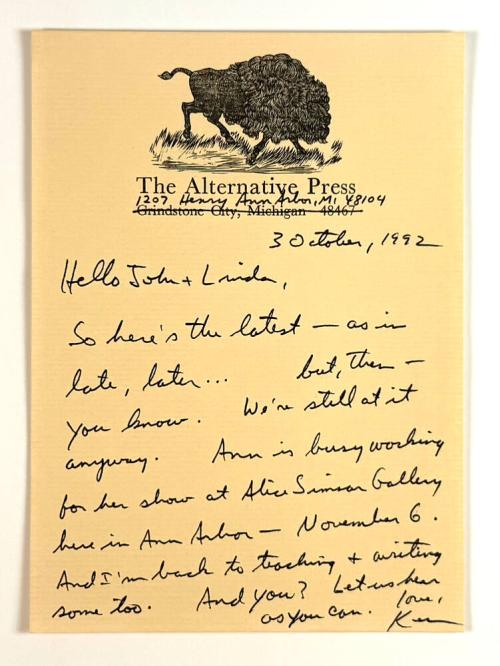 The Alternative Press
1207 Henry Ann Arbor, MI 48104
Grindstone City, Michigan 48467
3 October, 1992
Hello John + Linda,
So here's the latest — as in
late, later... but, then —
you know. We're still at it
anyway. Ann is busy working
for her show at Alice Simsar Gallery
here in Ann Arbor — November 6.
And I'm back to teaching + writing
some too. And you? Let us hear
as you can. love,
Ken